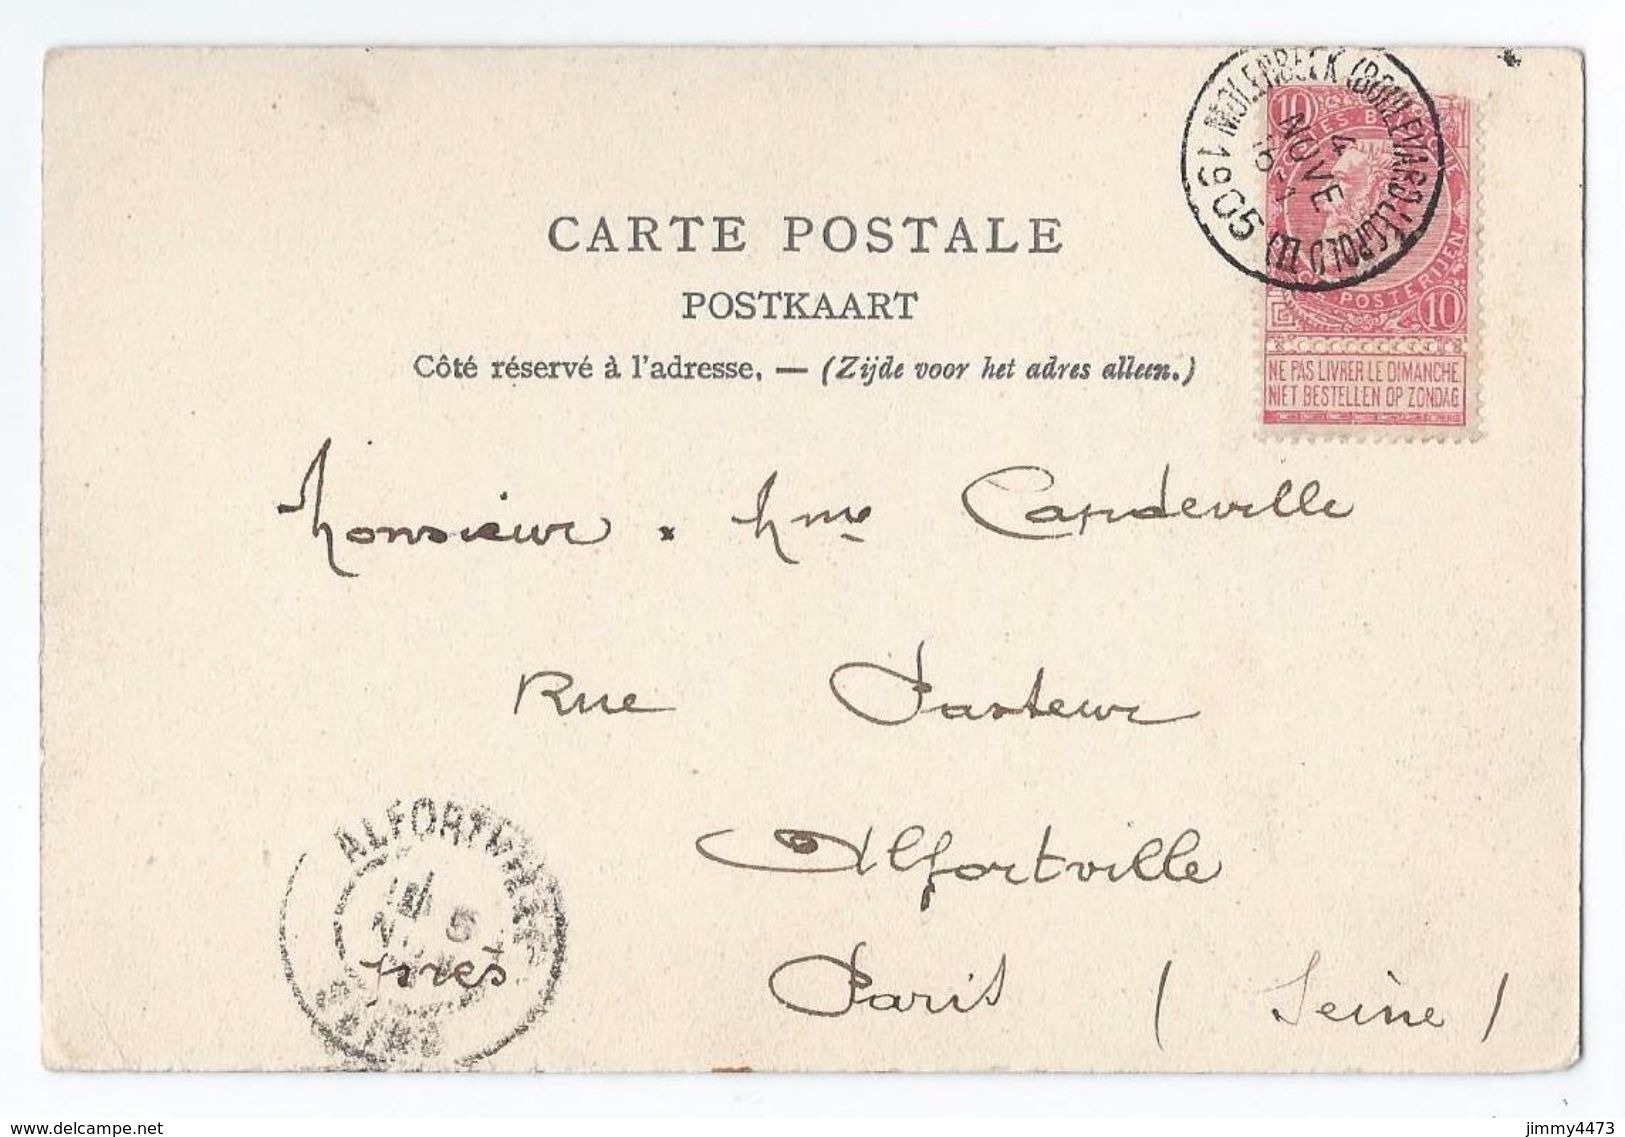 MOLENBEEK (BOULEVARD LEOPOLD II)
4
NOVE
1905
10
10
POSTERIJEN
NE PAS LIVRER LE DIMANCHE
NIET BESTELLEN OP ZONDAG
CARTE POSTALE
POSTKAART
Côté réservé à l'adresse. — (Zijde voor het adres alleen.)
Monsieur Mme Candeville
Rue Pasteur
Alfortville
près Paris (Seine)
ALFORTVILLE
5
SEINE
www.delcampe.net
jimmy4473